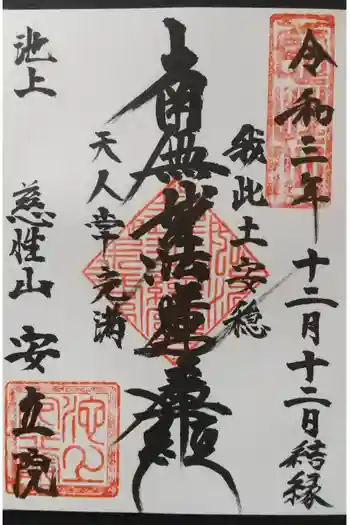 令和三年
十二月十二日結縁
我此土安穏
南無妙法蓮華経
天人常充満
池上
慈性山 安立院